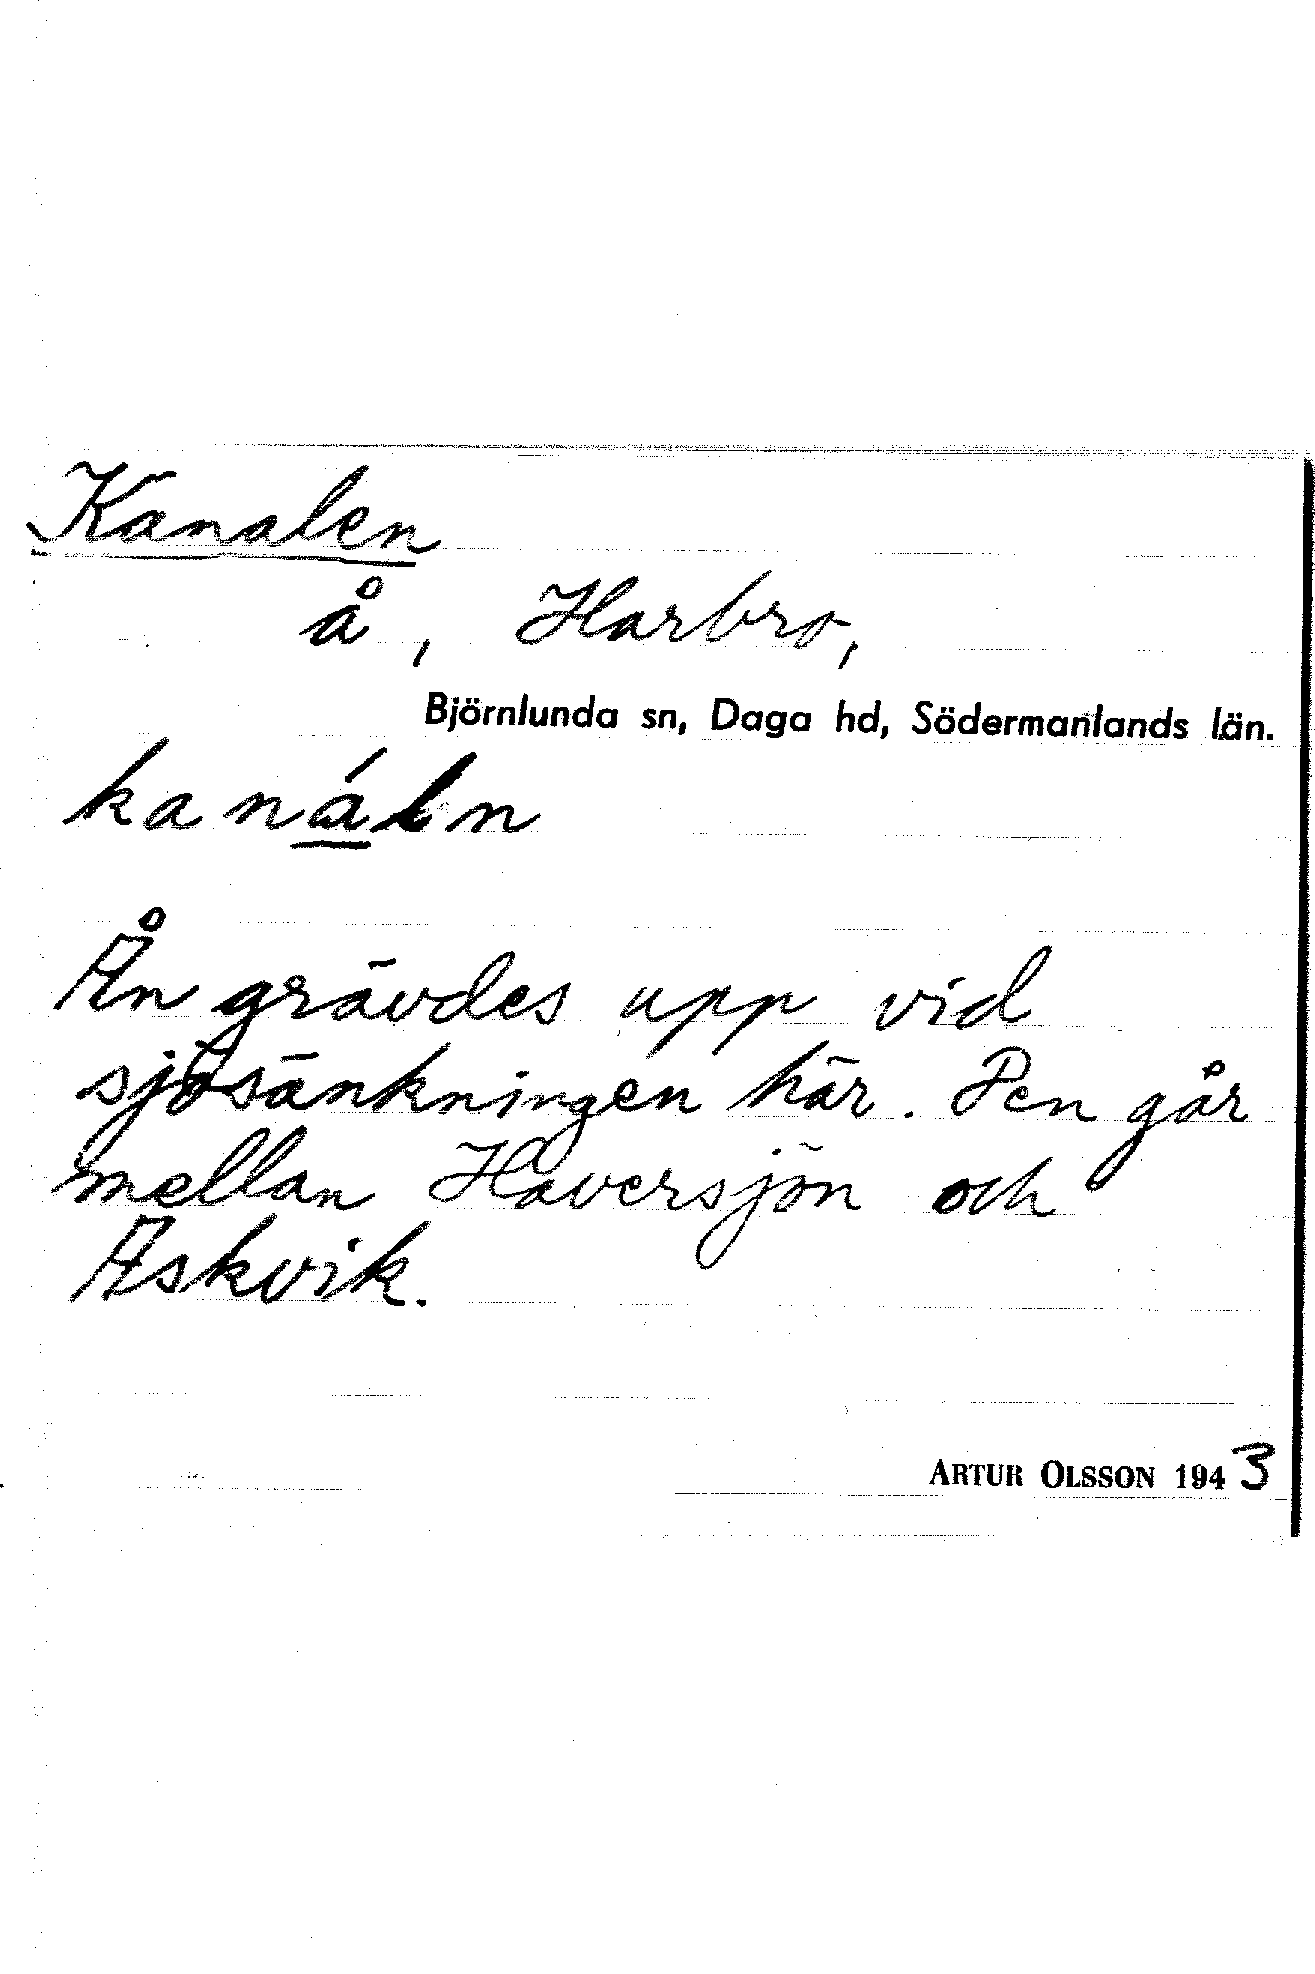 Kanalen
å, Harbro,
Björnlunda sn, Daga hd, Södermanlands län.
kanáln
Ån grävdes upp vid
sjösänkningen här. Den går
mellan Haversjön och
Askvik.
ARTUR OLSSON 1943